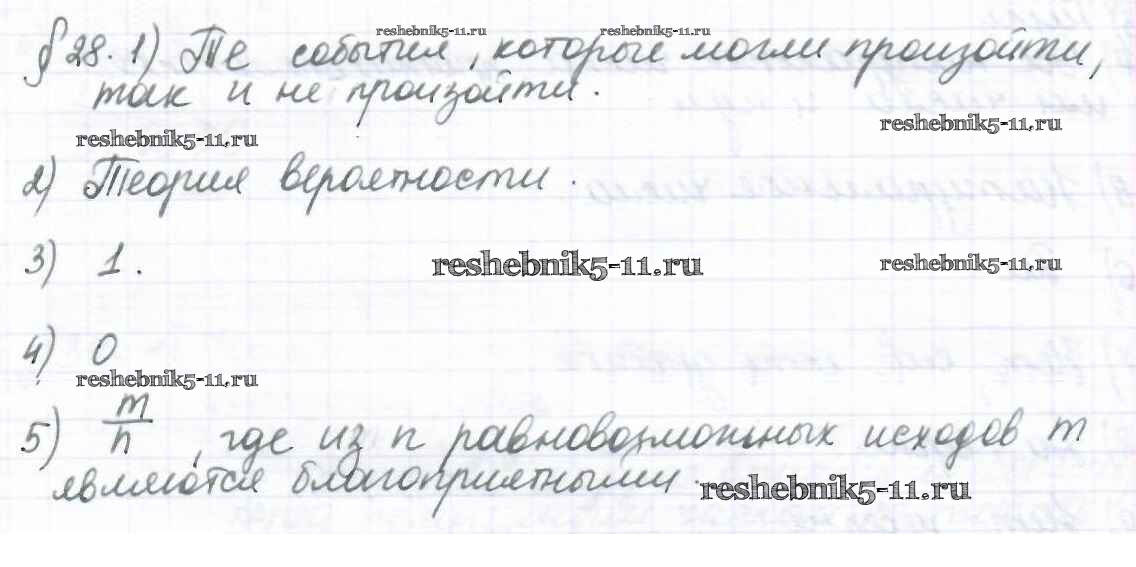 reshebnik5-11.ru reshebnik5-11.ru
§ 28. 1) Те события, которые могли произойти,
так и не произойти.
reshebnik5-11.ru reshebnik5-11.ru
2) Теория вероятности.
3) 1. reshebnik5-11.ru reshebnik5-11.ru
4) 0
reshebnik5-11.ru
5) m/n, где из n равновозможных исходов m
являются благоприятными. reshebnik5-11.ru